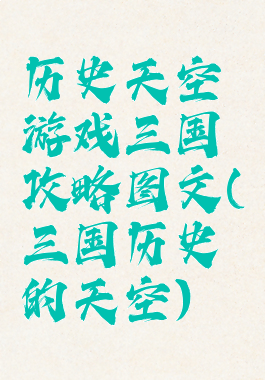 历史天空
游戏三国
攻略图文(
三国历史
的天空)